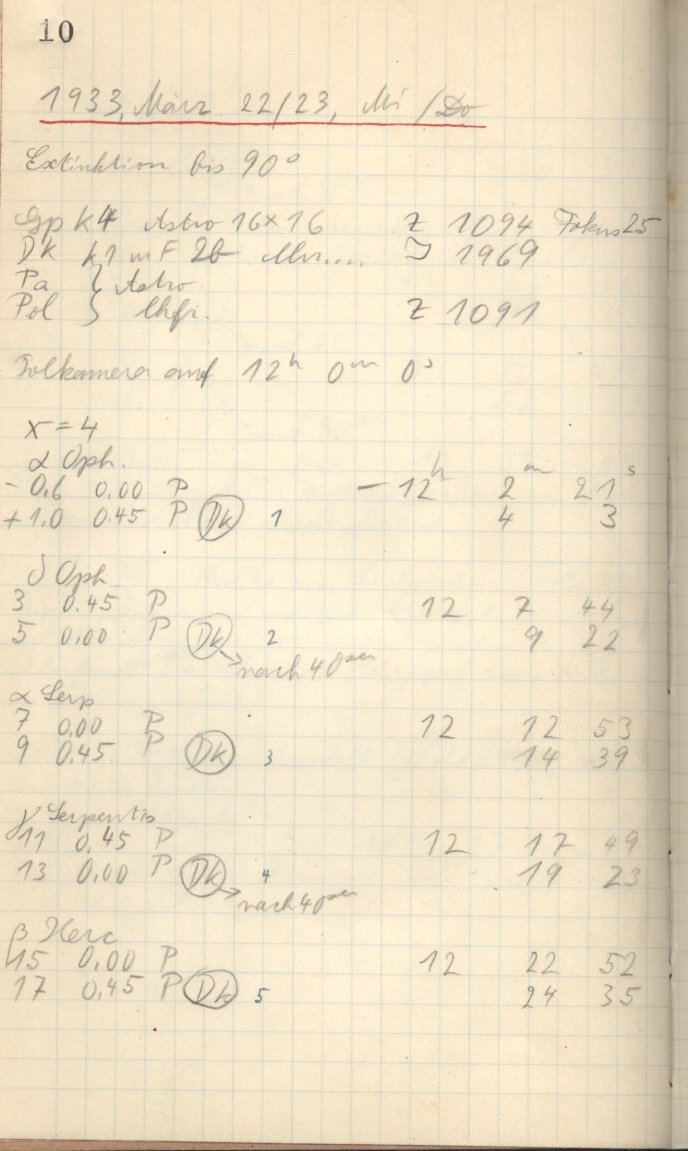 10
1933, März 22/23, Mi/Do
Extinktion bis 90°
Gp K4 Astro 16x16 Z 1094 Fokus 25
DK K1 m F 26 J 1969
Pa } Astro
Pol } Z 1091
Polkamera auf 12h 0m 0s
x = 4
α Oph.
- 0,6 0,00 P - 12h 2m 21s
+ 1,0 0,45 P DK 1 4 3
δ Oph
3 0,45 P 12 7 44
5 0,00 P DK 2 9 22
→ nach 40sec
α Serp
7 0,00 P 12 12 53
9 0,45 P DK 3 14 39
γ Serpentis
11 0,45 P 12 17 49
13 0,00 P DK 4 19 23
→ nach 40sec
β Herc
15 0,00 P 12 22 52
17 0,45 P DK 5 24 35